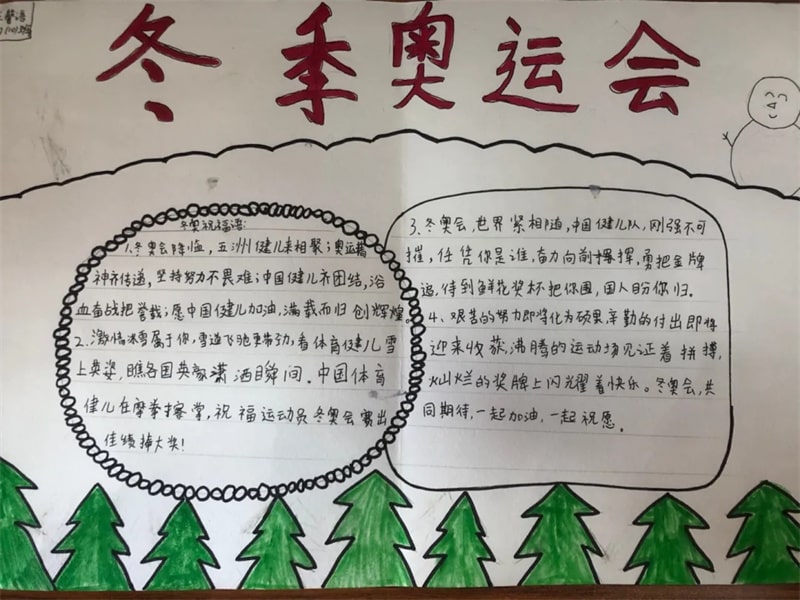 冬季奥运会
冬奥祝福语:
1.冬奥会降临,五洲健儿来相聚;奥运精
神齐传递,坚持努力不畏难;中国健儿齐团结,浴
血奋战把誉载;愿中国健儿加油,满载而归创辉煌。
2.激情冰雪属于你,雪道飞驰更带劲,看体育健儿雪
上英姿,瞧各国英豪潇洒瞬间.中国体育
健儿在摩拳擦掌,祝福运动员冬奥会赛出
佳绩掉大奖!
3.冬奥会,世界紧相随,中国健儿队,刚强不可
摧,任凭你是谁,奋力向前挥,勇把金牌
追,待到鲜花奖杯把你围,国人盼你归。
4、艰苦的努力即将化为硕果辛勤的付出即将
迎来收获沸腾的运动场见证着拼搏,
灿烂的奖牌上闪耀着快乐。冬奥会,共
同期待,一起加油,一起祝愿。